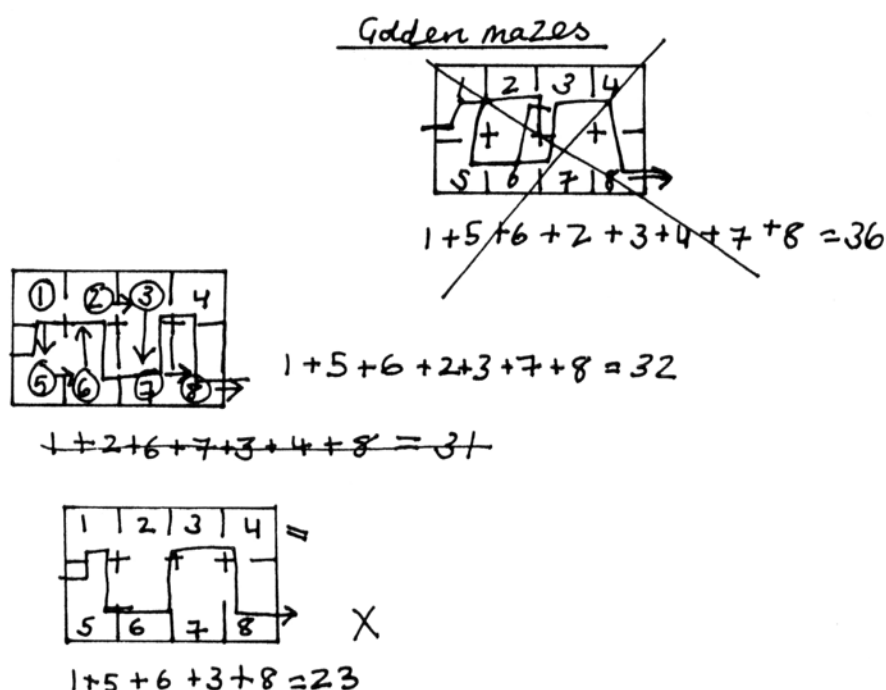 Golden mazes
1 2 3 4
5 6 7 8
1+5+6+2+3+4+7+8=36
1 2 3 4
5 6 7 8
1+5+6+2+3+7+8=32
1+2+6+7+3+4+8=31
1 2 3 4 =
5 6 7 8 X
1+5+6+3+8=23